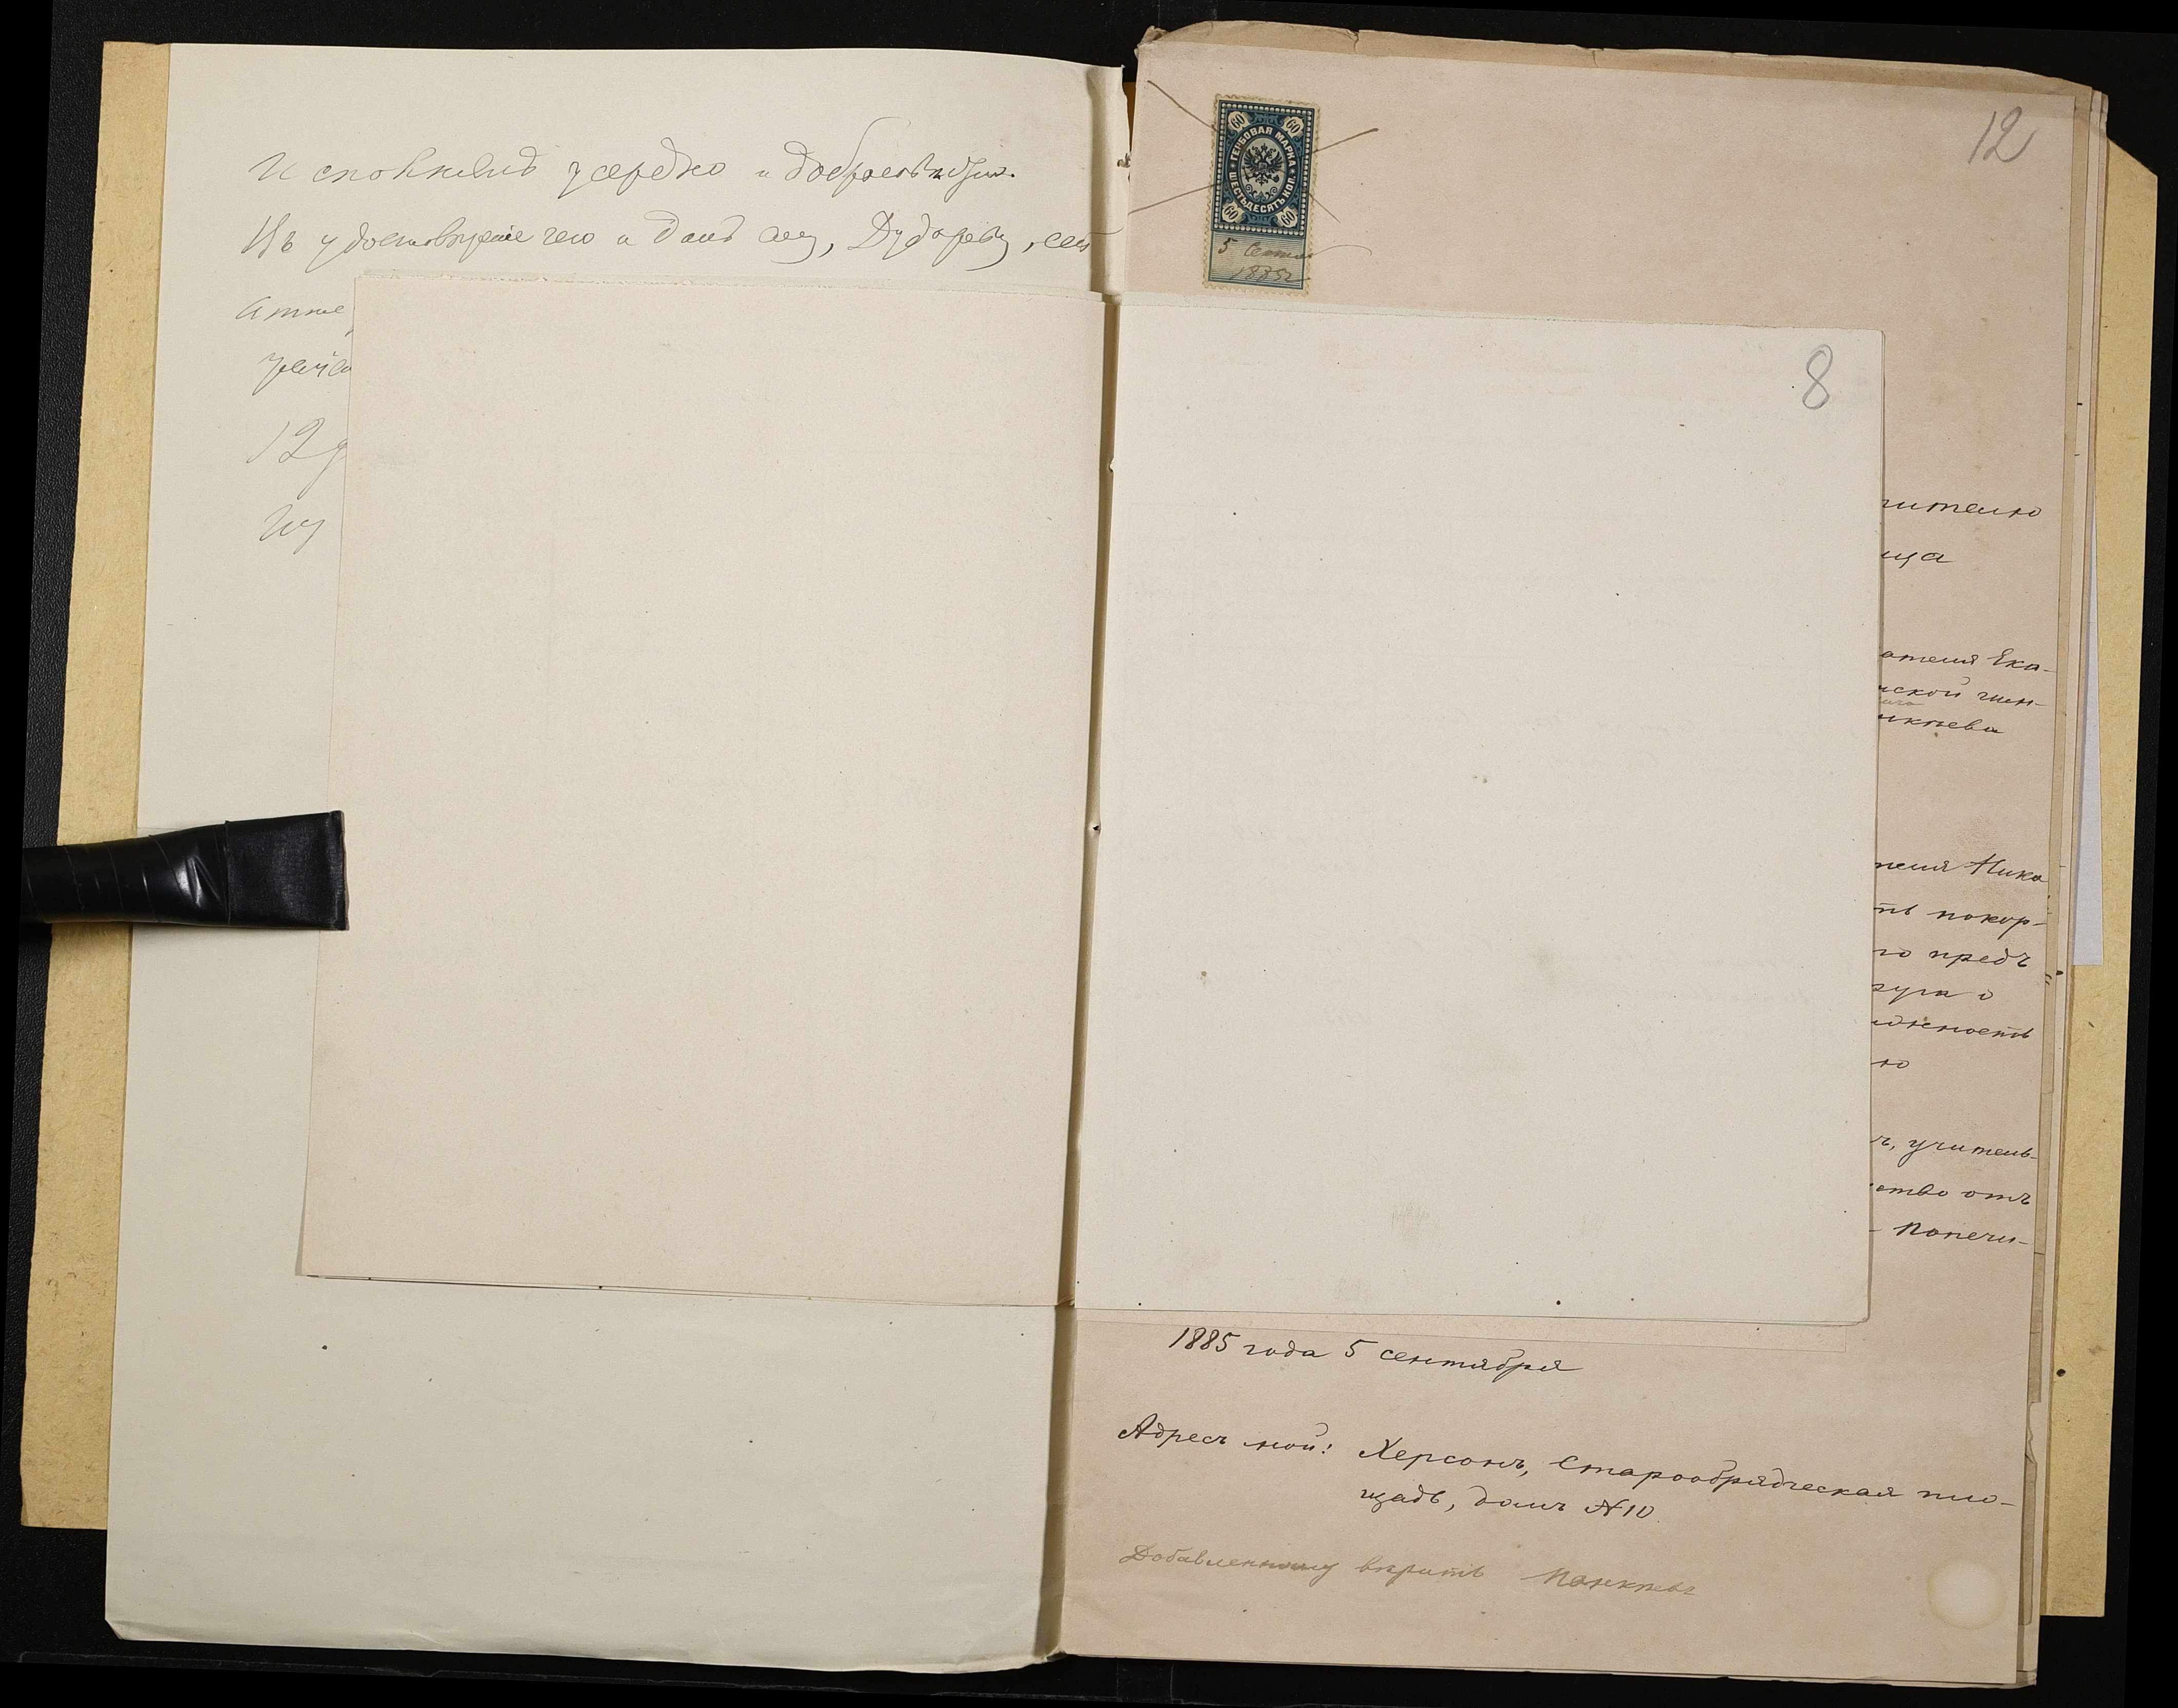 исполнялъ усердно и добросовѣстно.
Въ удостовѣреніе чего и данъ ему, Дудареву, сей
атте
12
12
60 60
ГЕРБОВАЯ МАРКА
ШЕСТЬДЕСЯТЪ КОП.
60 60
5 Сентяб
1885г.
8
чителю
ща
ателя Ека-
нской гим-
иктева
теля Нико
ть покор-
го предъ
руга о
лжность
ю
ъ, учитель-
ство отъ
Попечи-
1885 года 5 сентября
Адресъ мой: Херсонъ, Старообрядческая пло-
щадь, домъ №10.
Добавленному вѣрить